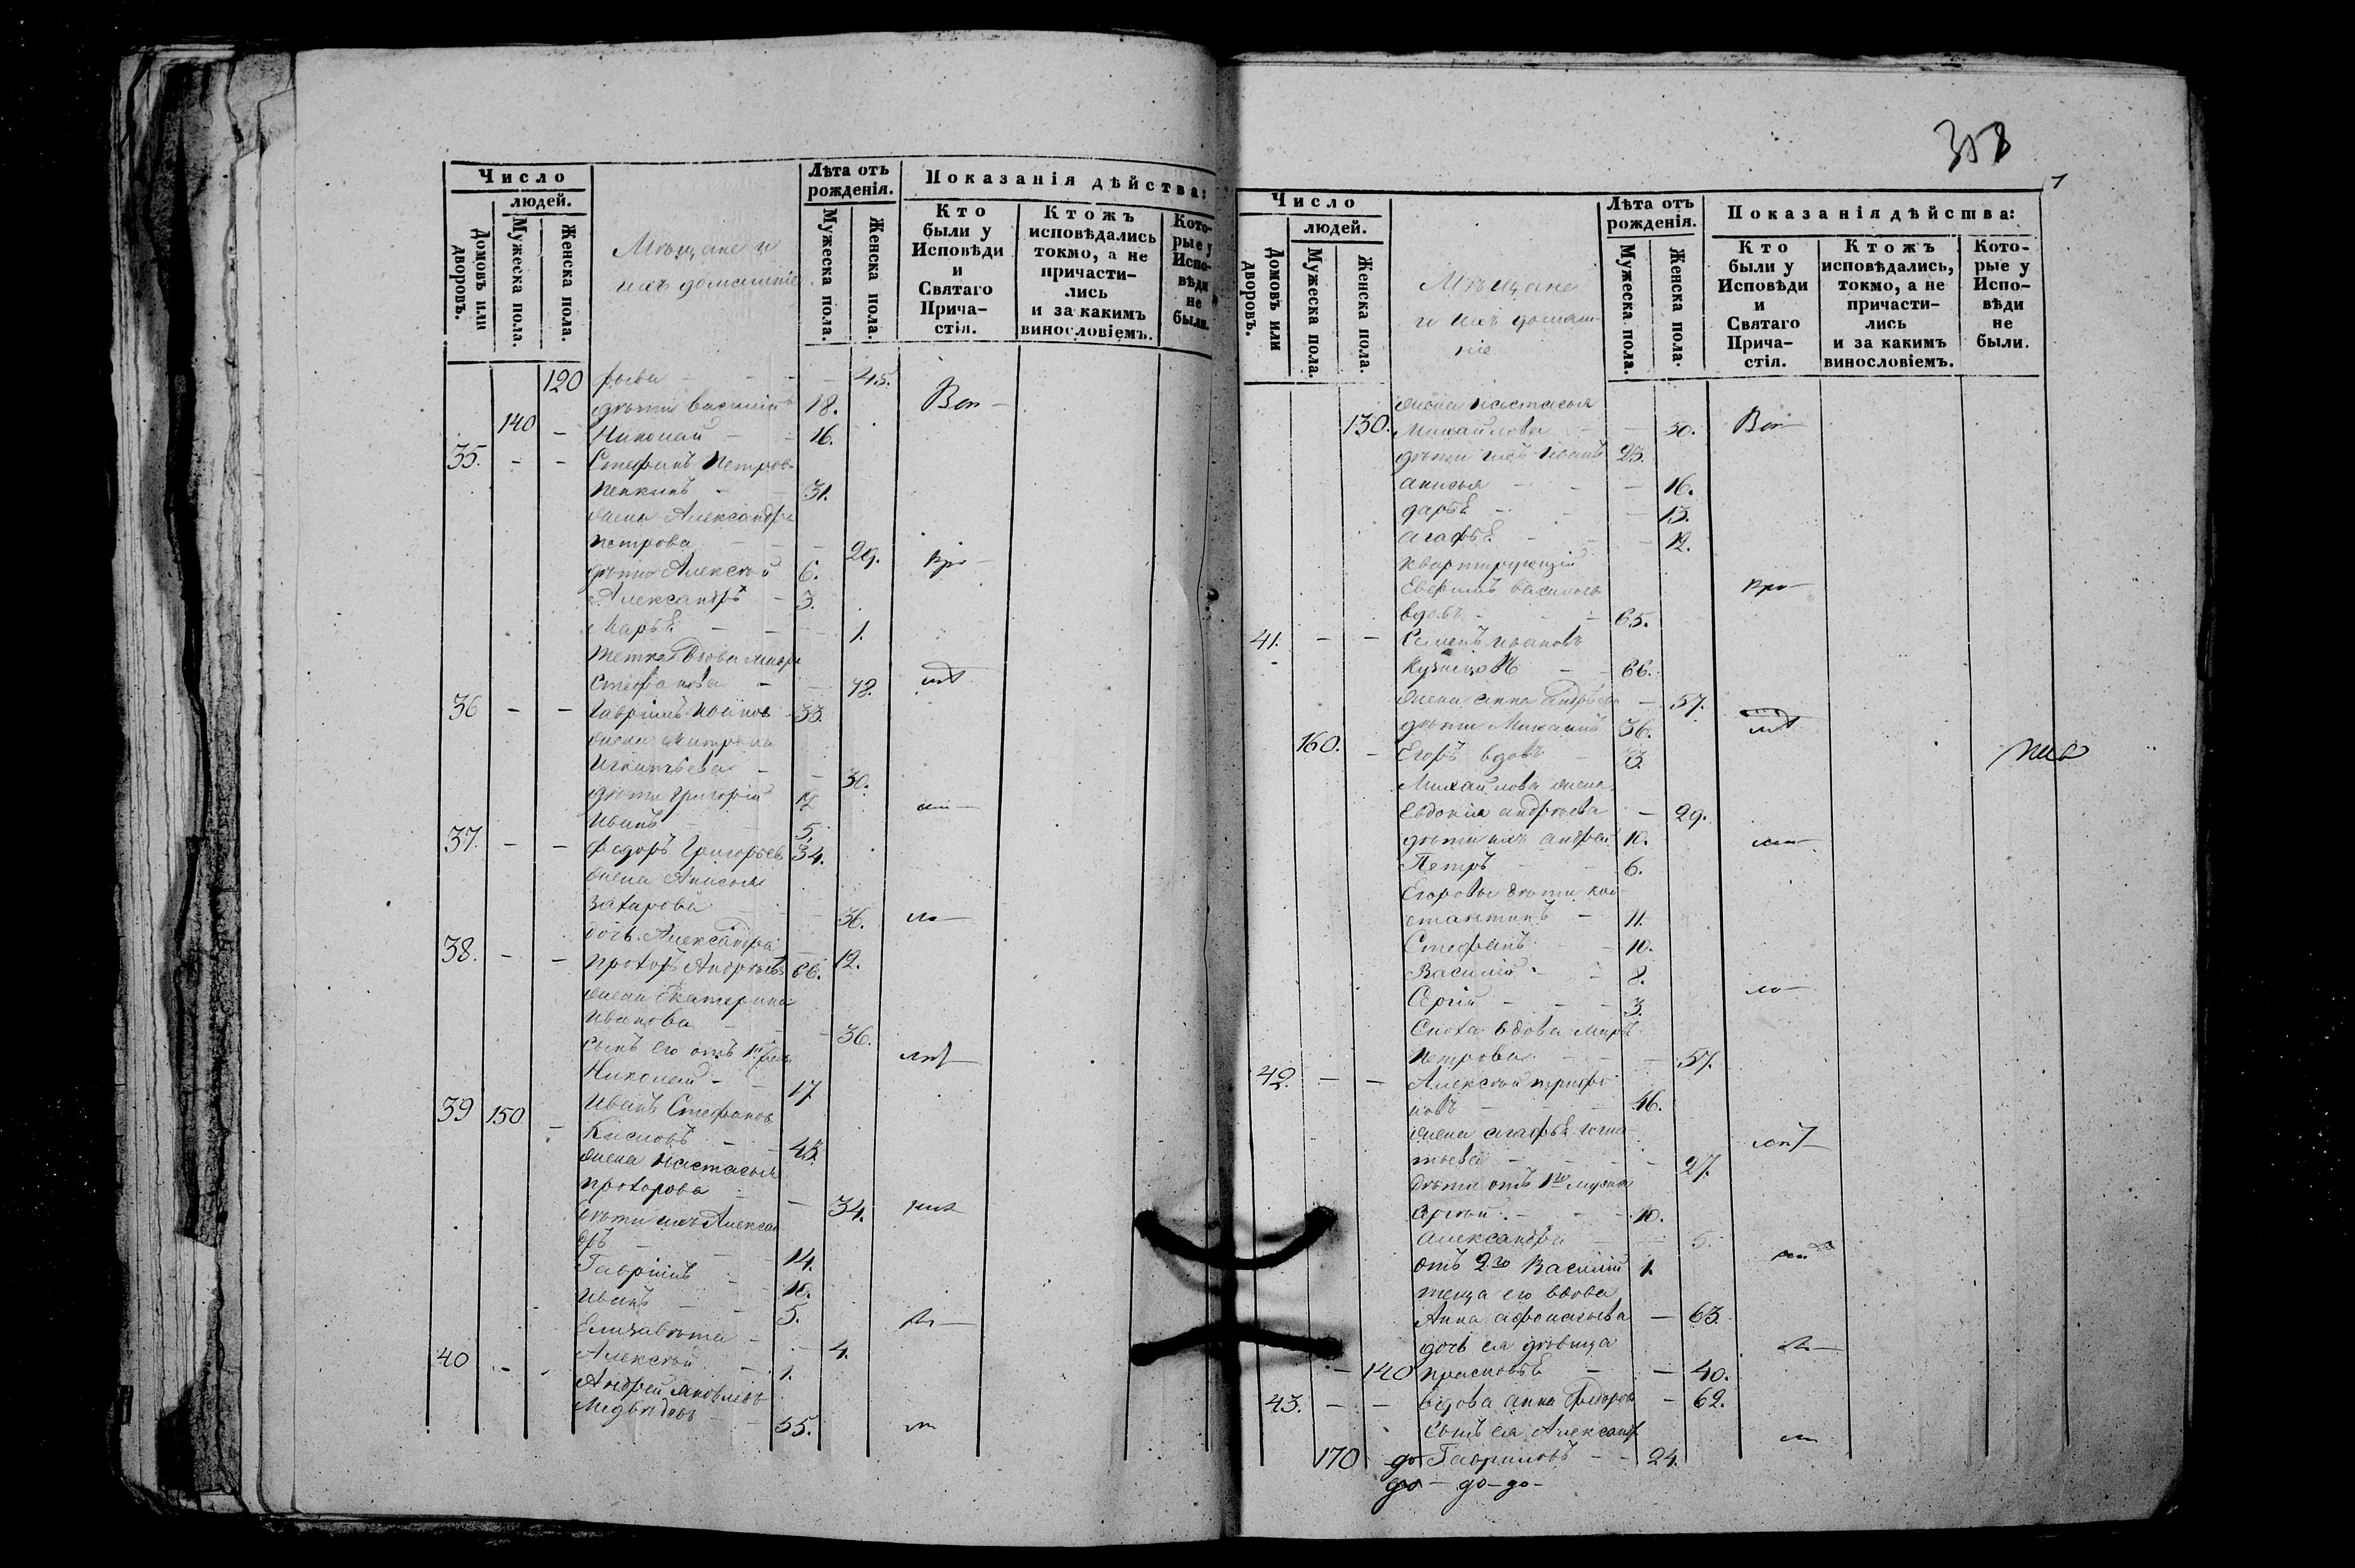 Число
людей.
Домовъ или дворовъ.
Мужеска пола.
Женска пола.
Мѣщане и
ихъ домашніе
Лѣта отъ рожденія.
Мужеска пола.
Женска пола.
Показанія дѣйства:
Кто были у Исповѣди и Святаго Прича- стія.
Ктожъ исповѣдались токмо, а не причасти- лись и за какимъ винословіемъ.
Кото- рые у Испо- вѣди не были.
120 45.
дѣти Василій 18.
140 - Николай - - 16.
35. - - Стефанъ Петровъ
31.
жена Александра
Петрова - - - 29.
дѣти Алексѣй 6.
Александръ - 3.
Марья - - - 1.
тетка вдова
Стефанова - - 48.
36 - - Гавріилъ Ивановъ 33.
жена Матрона
Игнатьева - - 30.
дѣти Григорій 12
Иванъ - - 5.
37. - - Федоръ Григорьевъ 34.
жена Анисья
Захарова - - - 36.
дочь Александра - 12.
38. - - Прохоръ Андреевъ 66.
жена Екатерина
Иванова - - - 36.
сынъ его отъ 1й
Николай - - 17
39 150 - Иванъ Стефановъ
Кисловъ - - 45.
жена Настасья
Прохорова - - 34.
дѣти ихъ Алексан
дръ - - 14.
Гавріилъ - 10.
Иванъ - - 5.
Елизавета - - 4.
Алексѣй - 1.
40 - - Андрей Яковлевъ
Медвѣдевъ - - 55.
358
Число
людей.
Домовъ или дворовъ.
Мужеска пола.
Женска пола.
Мѣщане
и ихъ домаш-
ніе
Лѣта отъ рожденія.
Мужеска пола.
Женска пола.
Показанія дѣйства:
Кто были у Исповѣди и Святаго Прича- стія.
Ктожъ исповѣдались, токмо, а не причасти- лись и за какимъ винословіемъ.
Кото- рые у Испо- вѣди не были.
жена Настасья
130. Михайлова - - 50.
дѣти ихъ Иванъ 23.
Анисья - - - 16.
Дарья - - - 13.
Агафья - - - 12.
Квартирующій
Васильевъ
вдовъ - - 65.
41. - - Семенъ Ивановъ
Кузнецовъ - - 66.
жена Анна Андреева - 57.
дѣти Михаилъ 36.
160. - Егоръ вдовъ - 33.
Михайлова жена
Евдокія Андреева - 29.
дѣти ихъ Андрей 10.
Петръ - 6.
Егоровы дѣти Кон
стантинъ - 11.
Стефанъ - 10.
Василій - - 8.
Сергій - - - 3.
Сноха вдова Марья
Петрова - - - 57.
42. - - Алексѣй Трифо
новъ - - - 46.
жена Агафья Игна
тьева - - - 27.
дѣти отъ 1го мужа
Сергѣй - - - 10.
Александра - - 5.
отъ 2го Василій 1.
теща его вдова
Анна Афонасьева - 63.
дочь ея дѣвица
- 140 Прасковья - - 40.
43. - - вдова Анна Федорова - 62.
Сынъ ея Александръ
170 до Гавриловъ - - 24.
до - до - до -